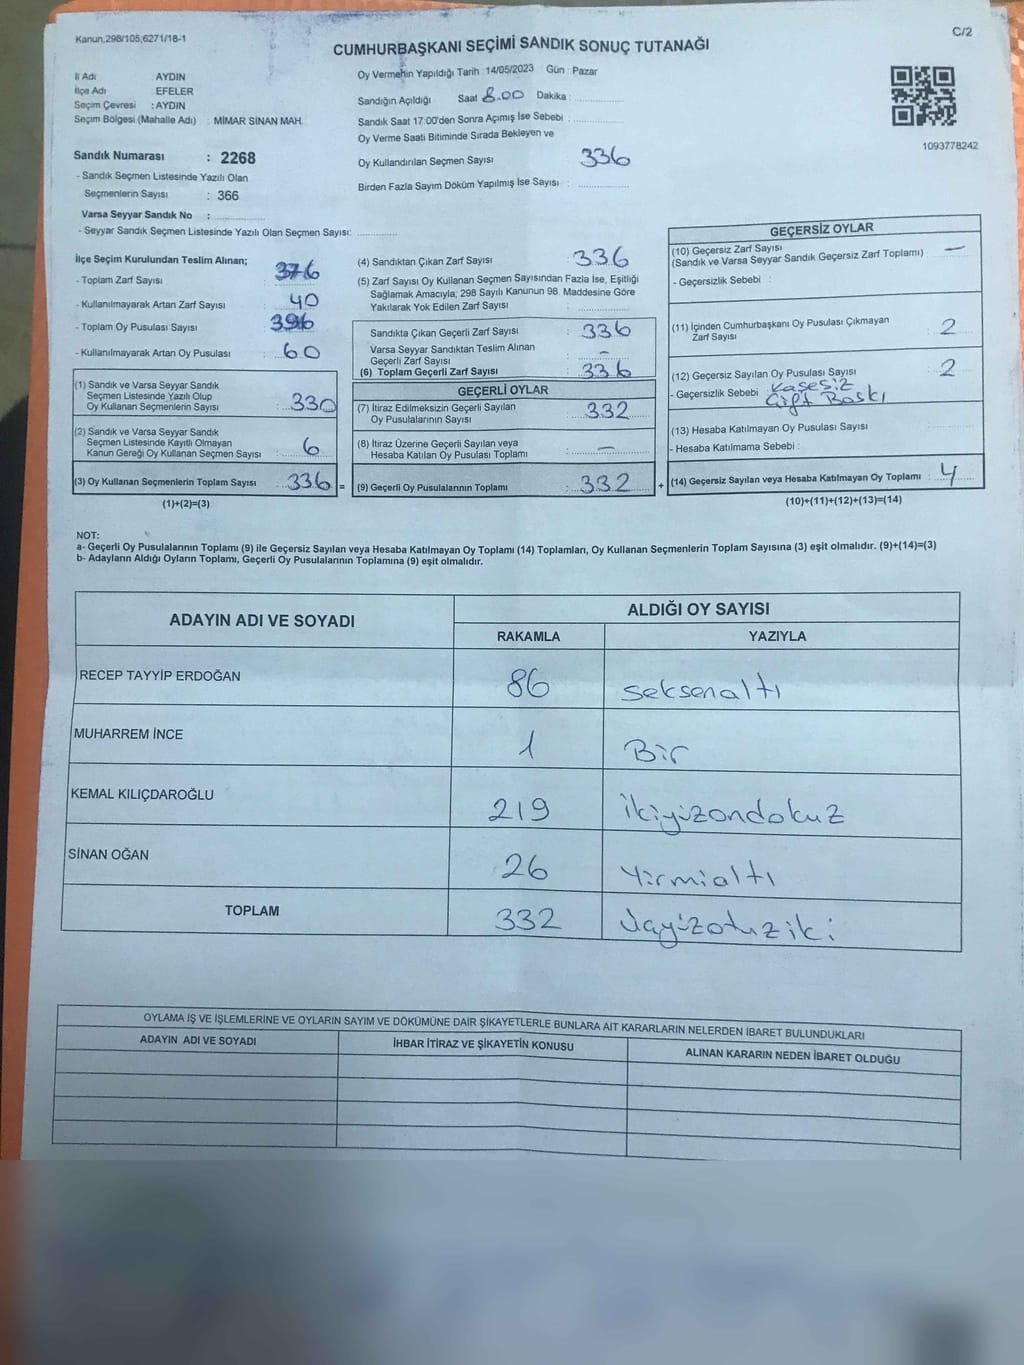 Kanun,298/105,6271/18-1
C/2
CUMHURBAŞKANI SEÇİMİ SANDIK SONUÇ TUTANAĞI
İl Adı AYDIN
İlçe Adı EFELER
Seçim Çevresi : AYDIN
Seçim Bölgesi (Mahalle Adı) : MİMAR SİNAN MAH.
Sandık Numarası : 2268
- Sandık Seçmen Listesinde Yazılı Olan
Seçmenlerin Sayısı : 366
Varsa Seyyar Sandık No :
- Seyyar Sandık Seçmen Listesinde Yazılı Olan Seçmen Sayısı:
Oy Vermenin Yapıldığı Tarih : 14/05/2023 Gün : Pazar
Sandığın Açıldığı Saat 8.00 Dakika :
Sandık Saat 17:00'den Sonra Açımış İse Sebebi :
Oy Verme Saati Bitiminde Sırada Bekleyen ve
Oy Kullandırılan Seçmen Sayısı 336
Birden Fazla Sayım Döküm Yapılmış İse Sayısı :
1093778242
İlçe Seçim Kurulundan Teslim Alınan;
- Toplam Zarf Sayısı : 376
- Kullanılmayarak Artan Zarf Sayısı : 40
- Toplam Oy Pusulası Sayısı : 396
- Kullanılmayarak Artan Oy Pusulası : 60
(1) Sandık ve Varsa Seyyar Sandık
Seçmen Listesinde Yazılı Olup
Oy Kullanan Seçmenlerin Sayısı : 330
(2) Sandık ve Varsa Seyyar Sandık
Seçmen Listesinde Kayıtlı Olmayan
Kanun Gereği Oy Kullanan Seçmen Sayısı : 6
(3) Oy Kullanan Seçmenlerin Toplam Sayısı : 336 =
(1)+(2)=(3)
(4) Sandıktan Çıkan Zarf Sayısı : 336
(5) Zarf Sayısı Oy Kullanan Seçmen Sayısından Fazla İse, Eşitliği
Sağlamak Amacıyla; 298 Sayılı Kanunun 98. Maddesine Göre
Yakılarak Yok Edilen Zarf Sayısı :
Sandıkta Çıkan Geçerli Zarf Sayısı : 336
Varsa Seyyar Sandıktan Teslim Alınan
Geçerli Zarf Sayısı : –
(6) Toplam Geçerli Zarf Sayısı : 336
GEÇERLİ OYLAR
(7) İtiraz Edilmeksizin Geçerli Sayılan
Oy Pusulalarının Sayısı : 332
(8) İtiraz Üzerine Geçerli Sayılan veya
Hesaba Katılan Oy Pusulası Toplamı : –
(9) Geçerli Oy Pusulalarının Toplamı : 332 +
GEÇERSİZ OYLAR
(10) Geçersiz Zarf Sayısı –
(Sandık ve Varsa Seyyar Sandık Geçersiz Zarf Toplamı) :
- Geçersizlik Sebebi :
(11) İçinden Cumhurbaşkanı Oy Pusulası Çıkmayan
Zarf Sayısı : 2
(12) Geçersiz Sayılan Oy Pusulası Sayısı : 2
- Geçersizlik Sebebi : Kaşesiz
Çift Baskı
(13) Hesaba Katılmayan Oy Pusulası Sayısı :
- Hesaba Katılmama Sebebi :
(14) Geçersiz Sayılan veya Hesaba Katılmayan Oy Toplamı : 4
(10)+(11)+(12)+(13)=(14)
NOT:
a- Geçerli Oy Pusulalarının Toplamı (9) ile Geçersiz Sayılan veya Hesaba Katılmayan Oy Toplamı (14) Toplamları, Oy Kullanan Seçmenlerin Toplam Sayısına (3) eşit olmalıdır. (9)+(14)=(3)
b- Adayların Aldığı Oyların Toplamı, Geçerli Oy Pusulalarının Toplamına (9) eşit olmalıdır.
ADAYIN ADI VE SOYADI
ALDIĞI OY SAYISI
RAKAMLA YAZIYLA
RECEP TAYYİP ERDOĞAN 86 Seksenaltı
MUHARREM İNCE 1 Bir
KEMAL KILIÇDAROĞLU 219 İkiyüzondokuz
SİNAN OĞAN 26 Yirmialtı
TOPLAM 332 Üçyüzotuziki
OYLAMA İŞ VE İŞLEMLERİNE VE OYLARIN SAYIM VE DÖKÜMÜNE DAİR ŞİKAYETLERLE BUNLARA AİT KARARLARIN NELERDEN İBARET BULUNDUKLARI
ADAYIN ADI VE SOYADI İHBAR İTİRAZ VE ŞİKAYETİN KONUSU ALINAN KARARIN NEDEN İBARET OLDUĞU